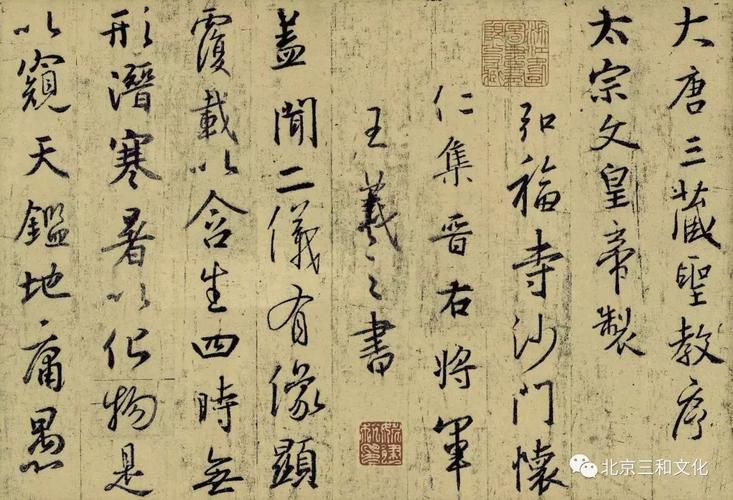 大唐三藏聖教序
太宗文皇帝製
弘福寺沙門懷
仁集晉右將軍
王羲之書
蓋聞二儀有像顯
覆載以含生四時無
形潛寒暑以化物是
以窺天鑑地庸愚
北京三和文化